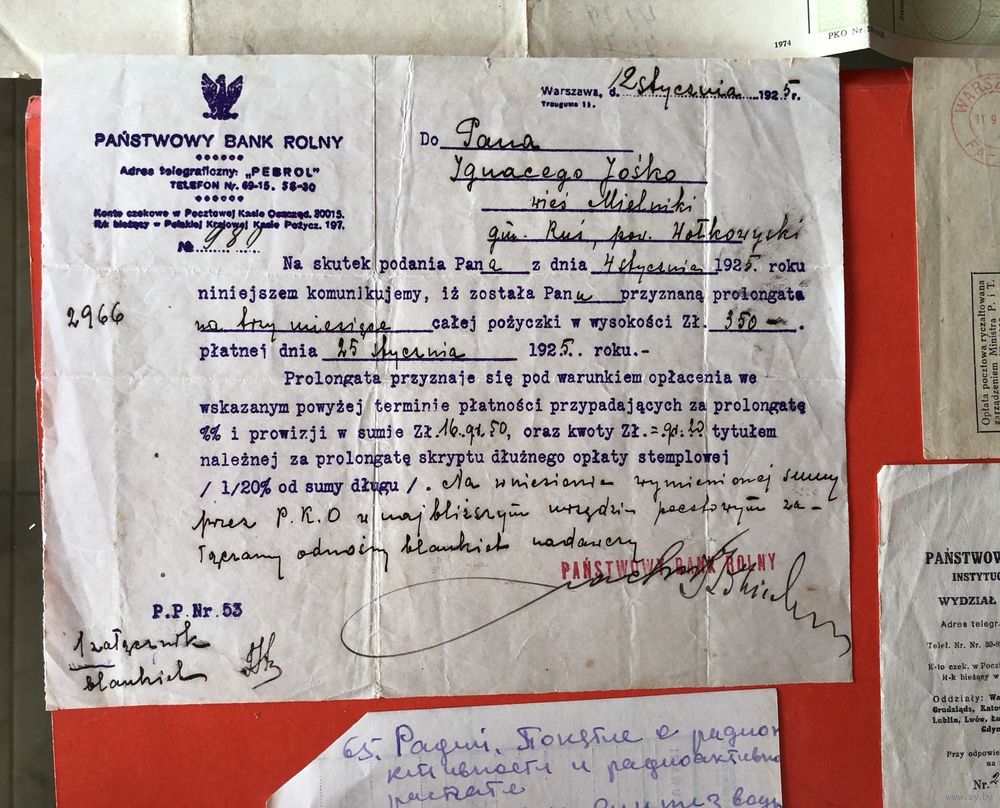 1974
PKO Nr
PAŃSTWOWY BANK ROLNY
Adres telegraficzny: „PEBROL”
TELEFON Nr. 69-15. 58-30
Konto czekowe w Pocztowej Kasie Oszczęd. 80015.
R/k bieżący w Polskiej Krajowej Kasie Pożycz. 197.
№ 980
Warszawa, d. 12 stycznia 1925 r.
Traugutta 11.
Do Pana
Ignacego Jośko
wieś Mielniki
gm. Ruś, pow. Wołkowyski
Na skutek podania Pana z dnia 4 stycznia 1925. roku
niniejszem komunikujemy, iż została Panu przyznaną prolongata
2966
na trzy miesiące całej pożyczki w wysokości Zł. 350 — .
płatnej dnia 25 stycznia 1925.. roku.-
Prolongata przyznaje się pod warunkiem opłacenia we
wskazanym powyżej terminie płatności przypadających za prolongatę
%% i prowizji w sumie Zł. 16.gr.50, oraz kwoty Zł.=gr.20 tytułem
należnej za prolongatę skryptu dłużnego opłaty stemplowej
/ 1/20% od sumy długu /. Na wniesienie wymienionej sumy
przez P.K.O w najbliższym urzędzie pocztowym za-
łączamy odnośny blankiet nadawczy
PAŃSTWOWY BANK ROLNY
P.P.Nr.53
1 załącznik
blankiet
WARSZ
FA-
Opłata pocztowa ryczałtowana
zarządzeniem Ministra P. i T.
PAŃSTWOW
INSTYTUC
WYDZIAŁ
Adres telegr.
Telef. Nr. Nr. 39-8
K-to czek. w Poczt
R-k bieżący w
Oddziały: Wa
Grudziądz, Kato
Lublin, Lwów, Łu
Gdyn
Przy odpowie
na
Nr. 2
65. Радий. Понятие о радиоак
тивности и радиоактивно
распаде
www.ay.by